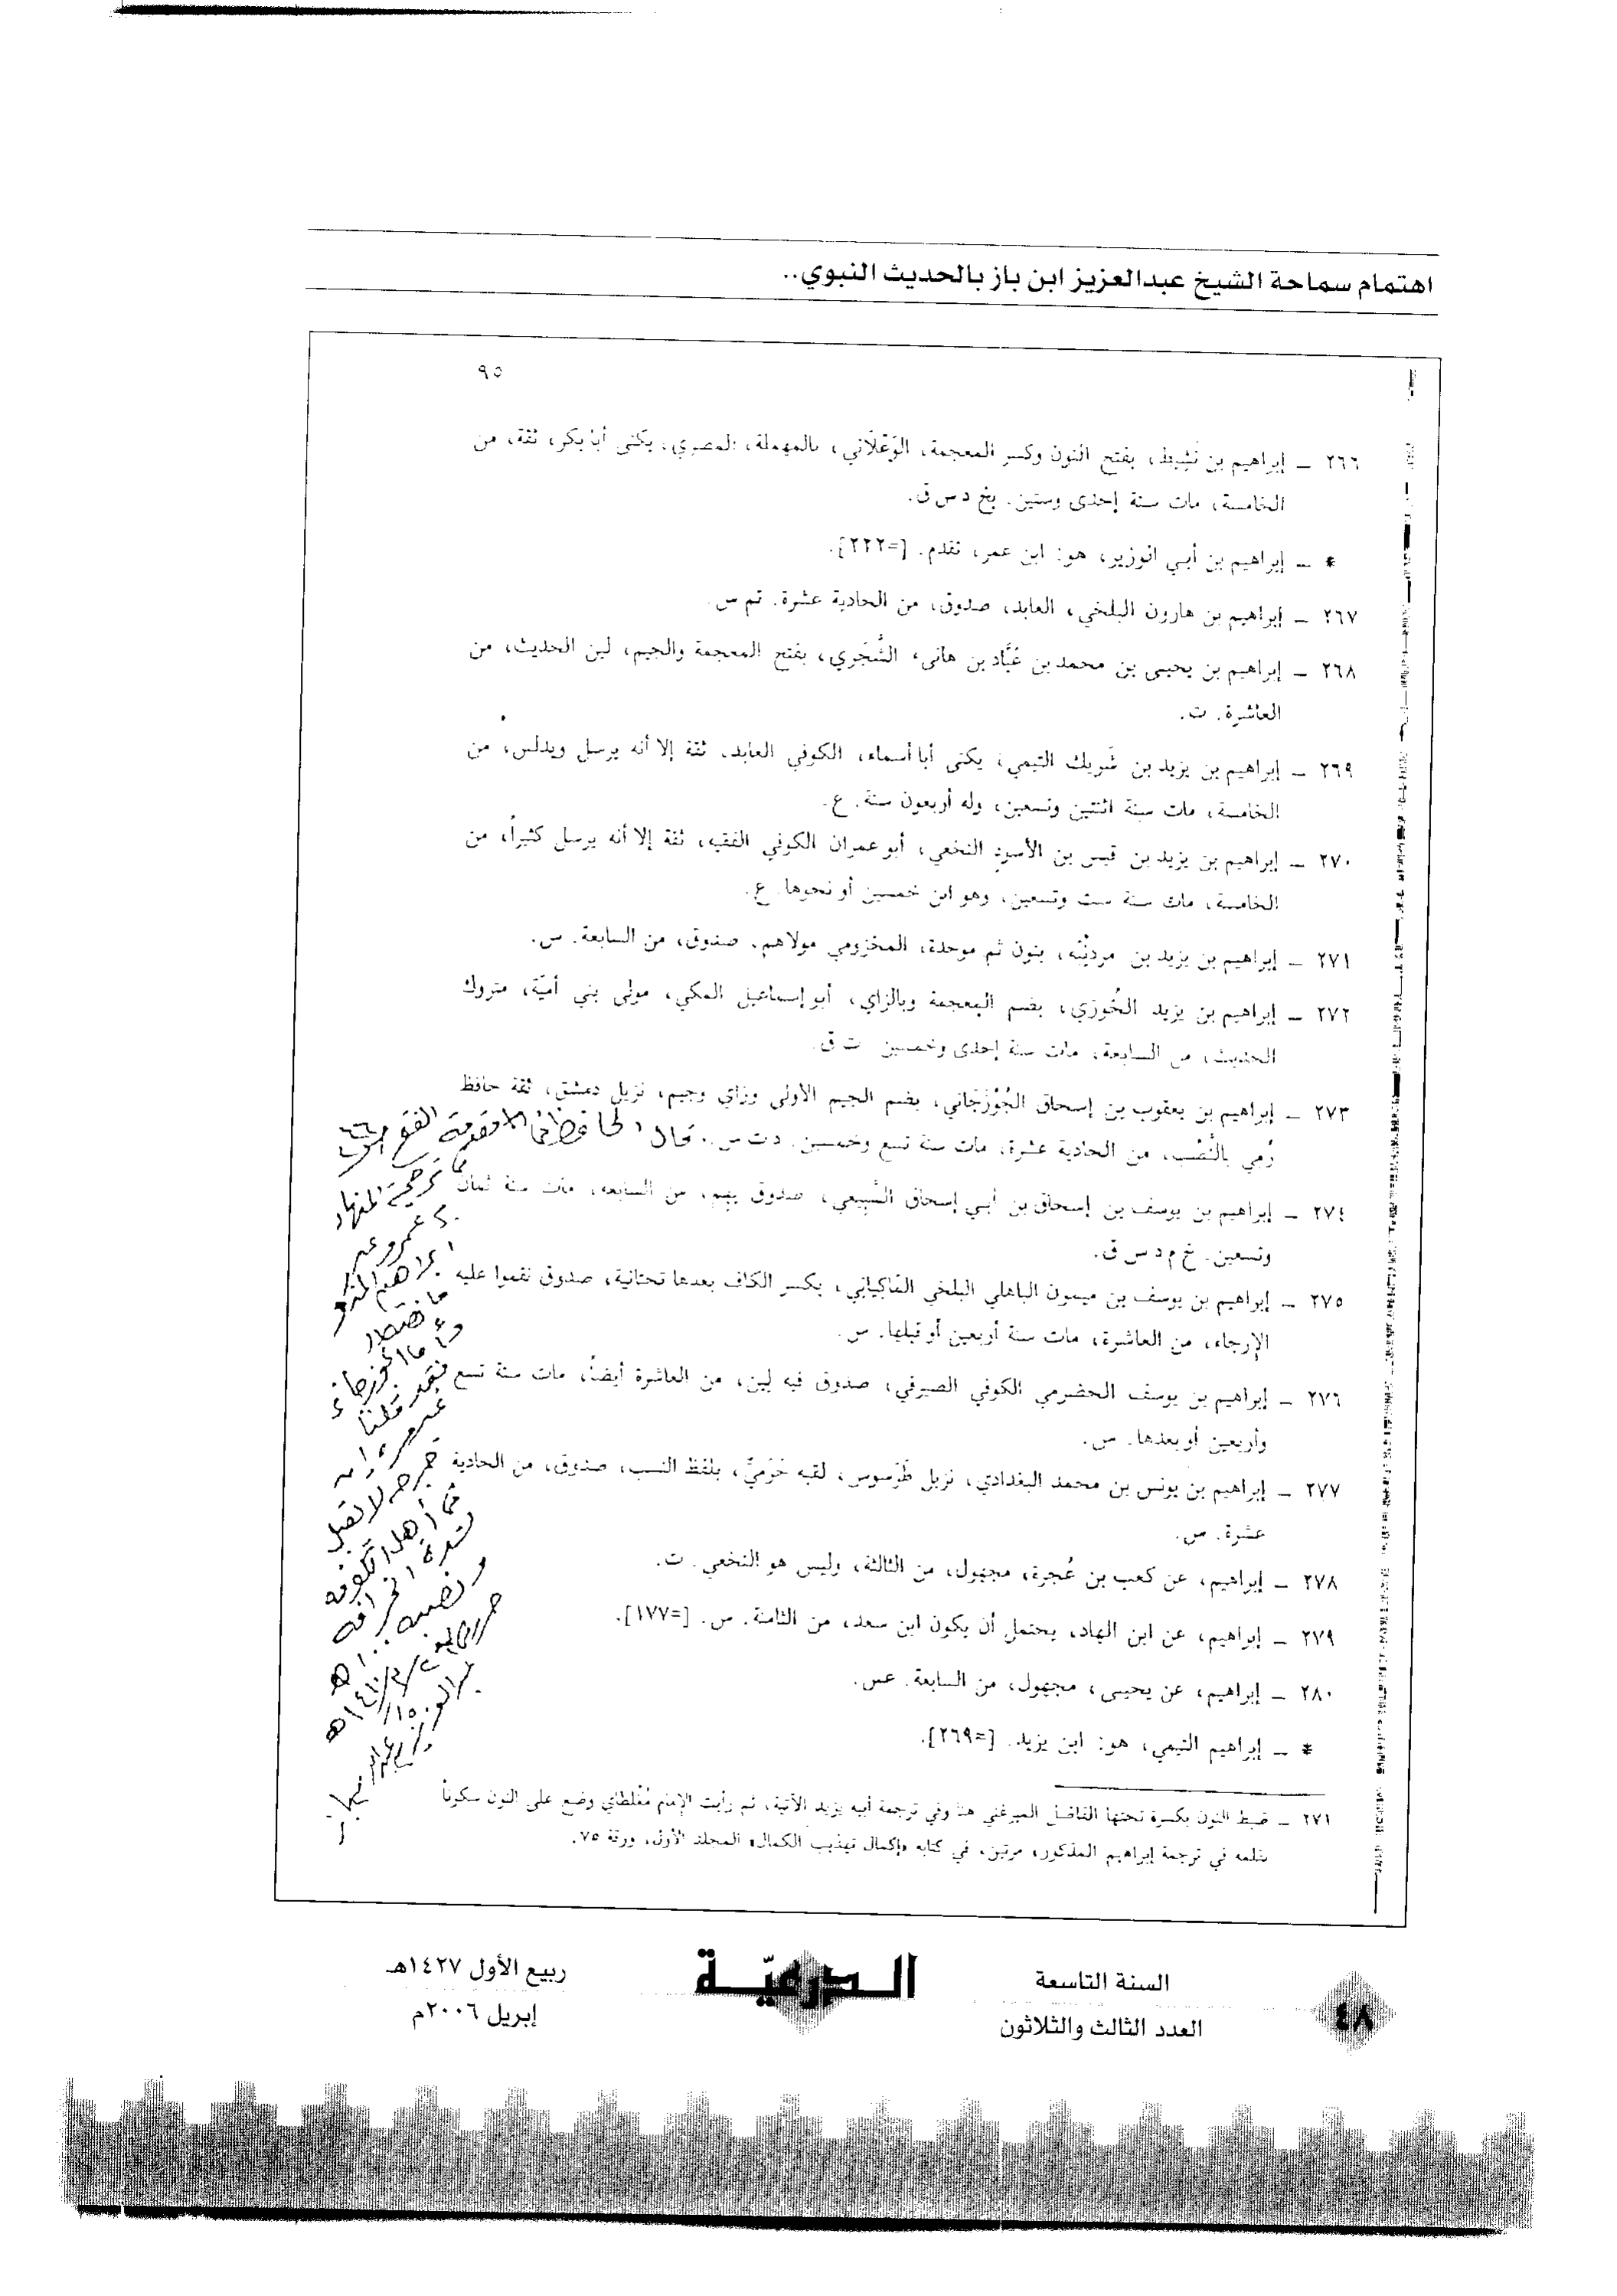 اهتمام سماحة الشيخ عبدالعزيز ابن باز بالحديث النبوي..
٩٥
٢٦٦ – إبراهيم بن نَشِيط، بفتح النون وكسر المعجمة، الوَعْلَاني، بالمهملة، المصري، يكنى أبا بكر، ثقة، من
الخامسة، مات سنة إحدى وستين. بخ د س ق.
* – إبراهيم بن أبي الوزير، هو: ابن عمر، تقدم. [=٢٢٢].
٢٦٧ – إبراهيم بن هارون البلخي، العابد، صدوق، من الحادية عشرة. تم س.
٢٦٨ – إبراهيم بن يحيى بن محمد بن عَبَّاد بن هانىء الشَّجَري، بفتح المعجمة والجيم، لين الحديث، من
العاشرة. ت.
٢٦٩ – إبراهيم بن يزيد بن شَريك التيمي، يكنى أبا أسماء، الكوفي العابد، ثقة إلا أنه يرسل ويدلس، من
الخامسة، مات سنة اثنتين وتسعين، وله أربعون سنة. ع.
٢٧٠ – إبراهيم بن يزيد بن قيس بن الأسود النخعي، أبو عمران الكوفي الفقيه، ثقة إلا أنه يرسل كثيراً، من
الخامسة، مات سنة ست وتسعين، وهو ابن خمسين أو نحوها. ع.
٢٧١ – إبراهيم بن يزيد بن مردانْبَه، بنون ثم موحدة، المخزومي مولاهم، صدوق، من السابعة. س.
٢٧٢ – إبراهيم بن يزيد الخُوزي، بضم المعجمة وبالزاي، أبو إسماعيل المكي، مولى بني أميّة، متروك
الحديث، من السابعة، مات سنة إحدى وخمسين. ت ق.
٢٧٣ – إبراهيم بن يعقوب بن إسحاق الجُوْزَجاني، بضم الجيم الأولى وزاي وجيم، نزيل دمشق، ثقة حافظ
رُمي بالنَّصْب، من الحادية عشرة، مات سنة تسع وخمسين. د ت س. قال الحافظ في مقدمة الفتح
٢٧٤ – إبراهيم بن يوسف بن إسحاق بن أبي إسحاق السَّبِيعي، صدوق يهم، من السابعة، مات سنة ثمان
في ترجمة المنهال
وتسعين. خ م د س ق.
بن عمرو
٢٧٥ – إبراهيم بن يوسف بن ميمون الباهلي البلخي الماكِياني، بكسر الكاف بعدها تحتانية، صدوق نقموا عليه
الإرجاء، من العاشرة، مات سنة أربعين أو قبلها. س.
وأما الجوزجاني
فقد قلنا
٢٧٦ – إبراهيم بن يوسف الحضرمي الكوفي الصيرفي، صدوق فيه لين، من العاشرة أيضاً، مات سنة تسع
وأربعين أو بعدها. س.
غير مرة إن
جرحه لا يقبل
٢٧٧ – إبراهيم بن يونس بن محمد البغدادي، نزيل طَرَسوس، لقبه حَرَميٌّ، بلفظ النسب، صدوق، من الحادية
عشرة. س.
في أهل الكوفة
لشدة انحرافه
٢٧٨ – إبراهيم، عن كعب بن عُجرة، مجهول، من الثالثة، وليس هو النخعي. ت.
ونصبه. اهـ
٢٧٩ – إبراهيم، عن ابن الهاد، يحتمل أن يكون ابن سعد، من الثامنة. س. [=١٧٧].
٢٨٠ – إبراهيم، عن يحيى، مجهول، من السابعة. عس.
* – إبراهيم التيمي، هو: ابن يزيد. [=٢٦٩].
٢٧١ – ضبط النون بكسرة تحتها الفاضل الميرغني هنا وفي ترجمة أبيه يزيد الآتية، ثم رأيت الإمام مُغْلطاي وضع على النون سكوناً
بقلمه في ترجمة إبراهيم المذكور، مرتين، في كتابه «إكمال تهذيب الكمال» المجلد الأول، ورقة ٧٥.
٤٨
السنة التاسعة
العدد الثالث والثلاثون
الـدرعيّـة
ربيع الأول ١٤٢٧هـ
إبريل ٢٠٠٦م